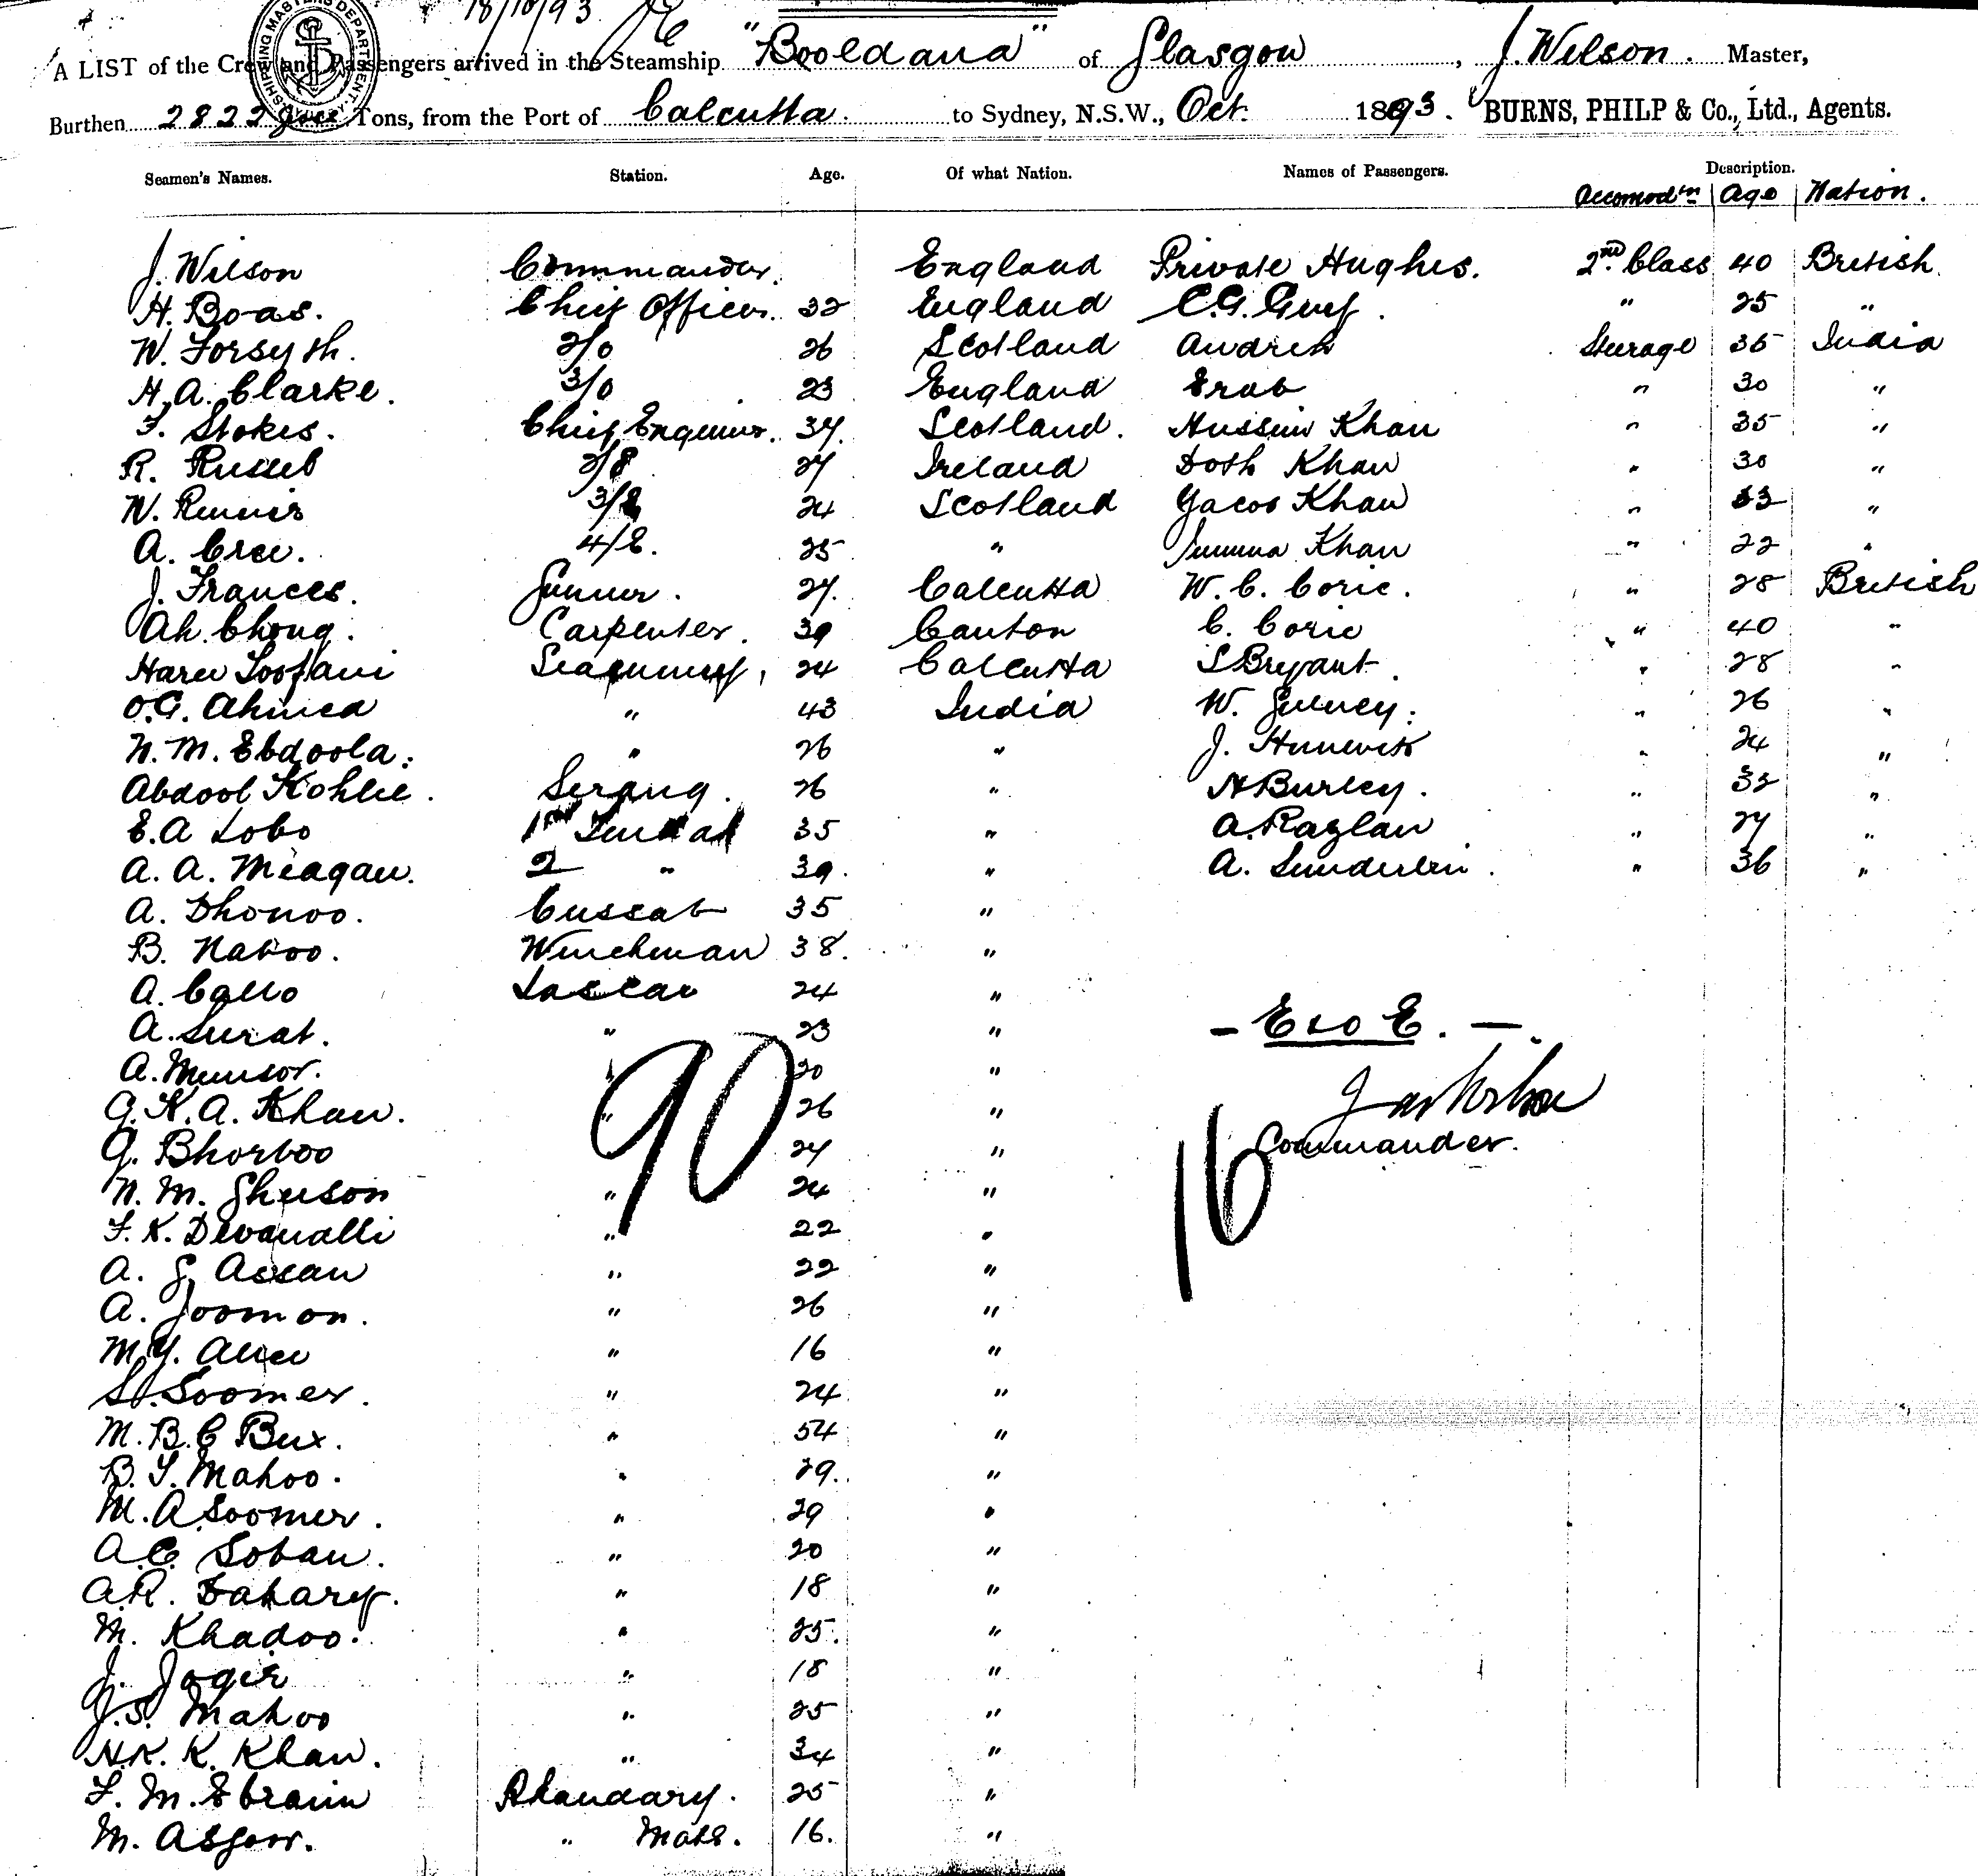 18/10/93
SHIPPING MASTERS DEPARTMENT
A LIST of the Crew and Passengers arrived in the Steamship "Booldana" of Glasgow, J. Wilson. Master,
Burthen 2822 Tons, from the Port of Calcutta. to Sydney, N.S.W., Oct. 1893. BURNS, PHILP & Co., Ltd., Agents.
Seamen's Names. Station. Age. Of what Nation. Names of Passengers. Description.
Accomodtn Age Nation.
J. Wilson Commander. England Private Hughes. 2nd Class 40 British.
H. Boas. Chief Officer. 32 England C.G. " 25 "
W. Forsyth. 2/0 26 Scotland Andrew Steerage 35 India
H. A. Clarke. 3/0 23 England " 30 "
F. Stokes. Chief Engineer. 34. Scotland. Hussein Khan " 35 "
R. Russel 2/E 27 Ireland Dosh Khan " 30 "
W. Rennie 3/E 24 Scotland Yacob Khan " 33 "
A. Cree. 4/E. 25 " Jumma Khan " 22 "
J. Frances. Gunner. 27. Calcutta W. C. Corie. " 28 British
Ah Chong. Carpenter. 39 Canton C. Corie " 40 "
Seacunny, 24 Calcutta S Bryant. " 28 "
O.G. Ahmed " 43 India W. " 26 "
N. M. Ebdoola. " 26 " J. " 24 "
Abdool Kohlee. Serang. 26 " H Burley. " 32 "
E. A Lobo 1st Tindal 35 " A. Raglan " 27 "
A. A. Meagan. 2 " 39. " A. Sunderlin. " 36 "
A. Dhonoo. Cussab 35 "
B. Naboo. Winchman 38. "
A. Callo Lascar 24 "
A. Surat. " 23 " - E & O E. -
A. Munsor. " 20 "
G. K. A. Khan. " 26 "
G. Bhorboo " 27 " Commander.
N. M. Ghuson " 24 "
90
16
F. K. Devanalli " 22 "
A. G. Assan " 22 "
A. Joomon. " 26 "
M. Y. " 16 "
S. Soomer. " 24 "
M. B. C Bux. " 54 "
B. S. Mahoo. " 29. "
M. A Soomer. " 29 "
A. C. Soban. " 20 "
A. R. " 18 "
M. Khadoo. " 25. "
J. Joger " 18 "
J. S. Mahoo " 25 "
H. K. K. Khan. " 34 "
F. M. Ebraim Bhandary. 25 "
M. Asgor. " Mate. 16. "